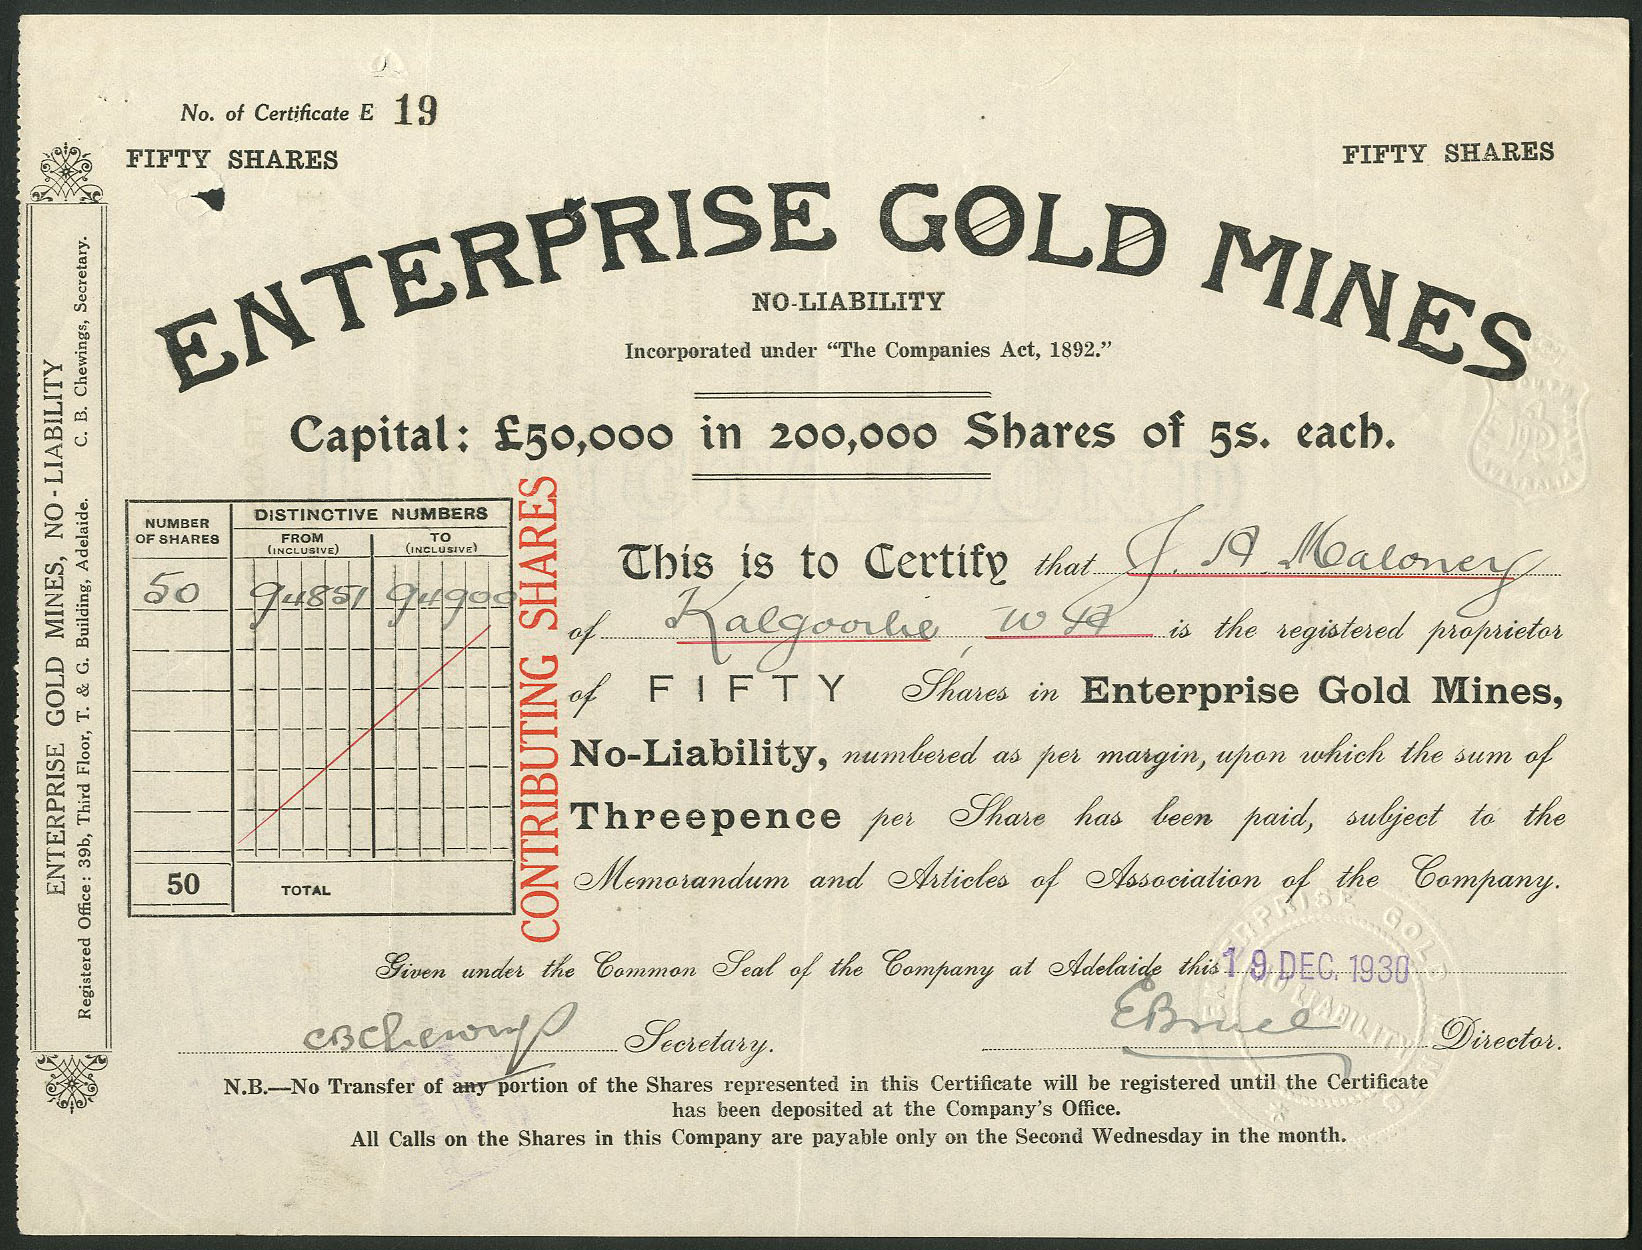 No. of Certificate E 19
FIFTY SHARES
FIFTY SHARES
ENTERPRISE GOLD MINES
NO-LIABILITY
Incorporated under “The Companies Act, 1892.”
Capital: £50,000 in 200,000 Shares of 5s. each.
ENTERPRISE GOLD MINES, NO-LIABILITY
Registered Office: 39b, Third Floor, T. & G. Building, Adelaide. C. B. Chewings, Secretary.
NUMBER OF SHARES
DISTINCTIVE NUMBERS
FROM (INCLUSIVE)
TO (INCLUSIVE)
50 94851 94900
50 TOTAL
CONTRIBUTING SHARES
This is to Certify that J. A. Maloney
of Kalgoorlie, W A is the registered proprietor
of FIFTY Shares in Enterprise Gold Mines,
No-Liability, numbered as per margin, upon which the sum of
Threepence per Share has been paid, subject to the
Memorandum and Articles of Association of the Company.
Given under the Common Seal of the Company at Adelaide this 19 DEC. 1930
CBChewings Secretary.
Director.
N.B.—No Transfer of any portion of the Shares represented in this Certificate will be registered until the Certificate
has been deposited at the Company's Office.
All Calls on the Shares in this Company are payable only on the Second Wednesday in the month.